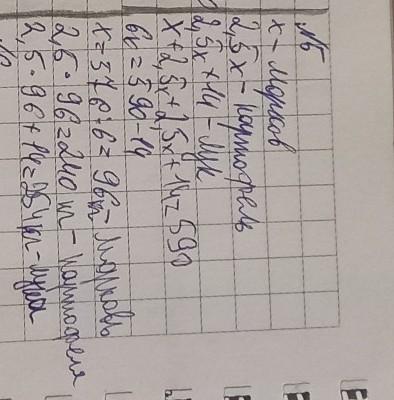 №5
х - морков
2,5х - картофель
2,5х + 14 - лук
х + 2,5х + 2,5х + 14 = 590
6х = 590 - 14
х = 576 : 6 = 96кг - морковь
2,5 · 96 = 240 кг - картофеля
2,5 · 96 + 14 = 254кг - лука